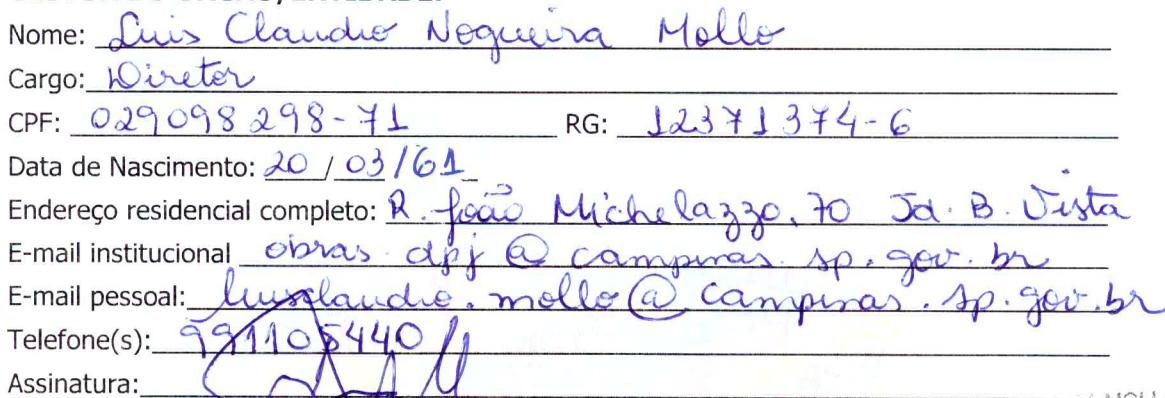 Nome: Luis Claudio Nogueira Mollo
Cargo: Diretor
CPF: 029098298-71 RG: 12371374-6
Data de Nascimento: 20 / 03 / 61
Endereço residencial completo: R. João Michelazzo, 70 Jd. B. Vista
E-mail institucional obras.dpj@campinas.sp.gov.br
E-mail pessoal: luisclaudio.mollo@campinas.sp.gov.br
Telefone(s): 991105440
Assinatura: